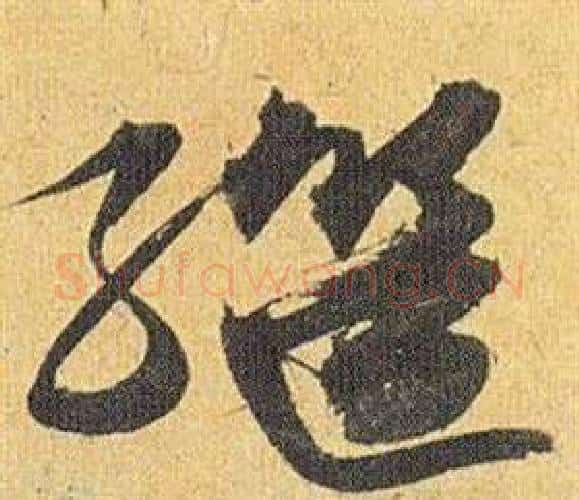 繼
Shufawang.CN